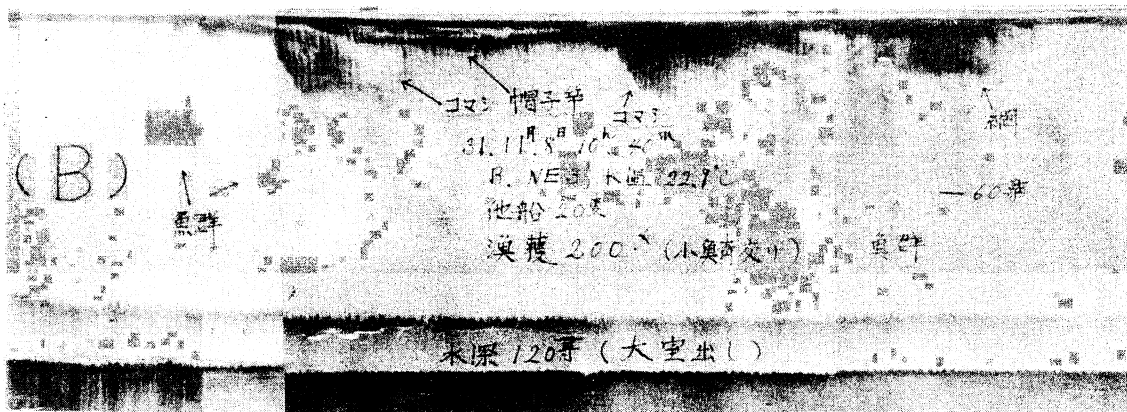 (B)
魚群
コマシ
帽子竿
コマシ
網
31.11月8日10h 40m
B. NE 3 水温 22.9°C
他船 20隻
漁獲 200 (小魚交り)
60米
魚群
水深 120 (大室出し)